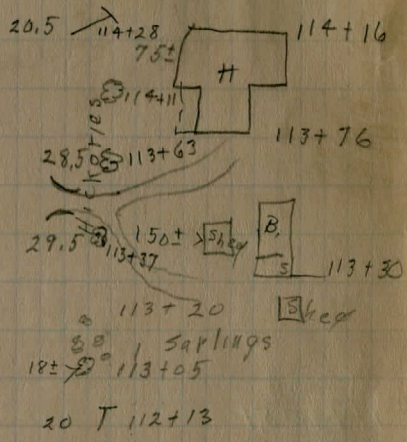 20.5 114+28 114+16
75±
H
114+11
Hickories
113+76
28.5 113+63
29.5 113+37
150± Shed B.
S 113+30
113+20 Shed
Saplings
18± 113+05
20 T 112+13